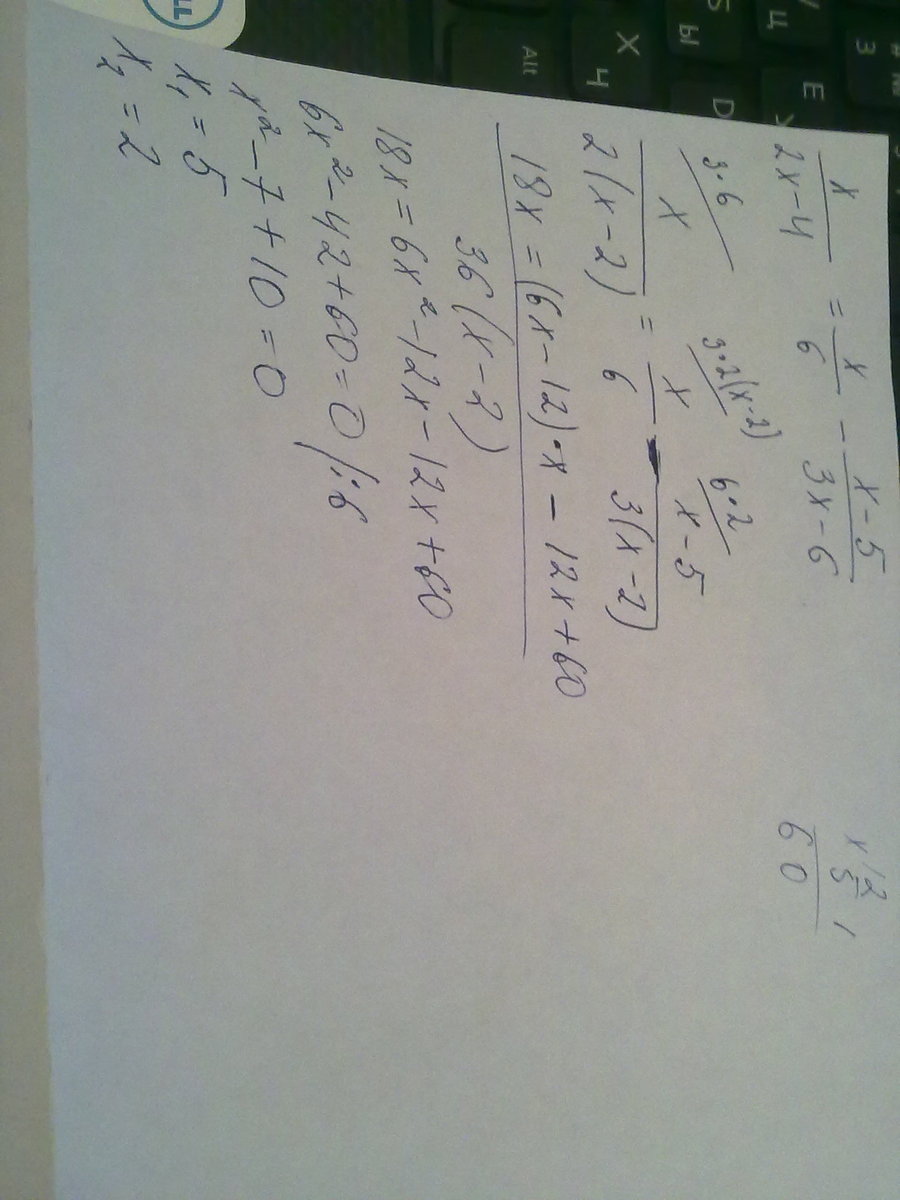 x/(2x-4) = x/6 - (x-5)/(3x-6)
3·6/ 3·2(x-2)/ 6·2/
x/(2(x-2)) = x/6 - (x-5)/(3(x-2))
18x = (6x-12)·x - 12x+60
36(x-2)
18x = 6x²-12x-12x+60
6x²-42+60=0/:6
x²-7+10=0
x₁=5
x₂=2
x 12
5
60
Alt
X
Ч
Ы
Ц
D
E
З